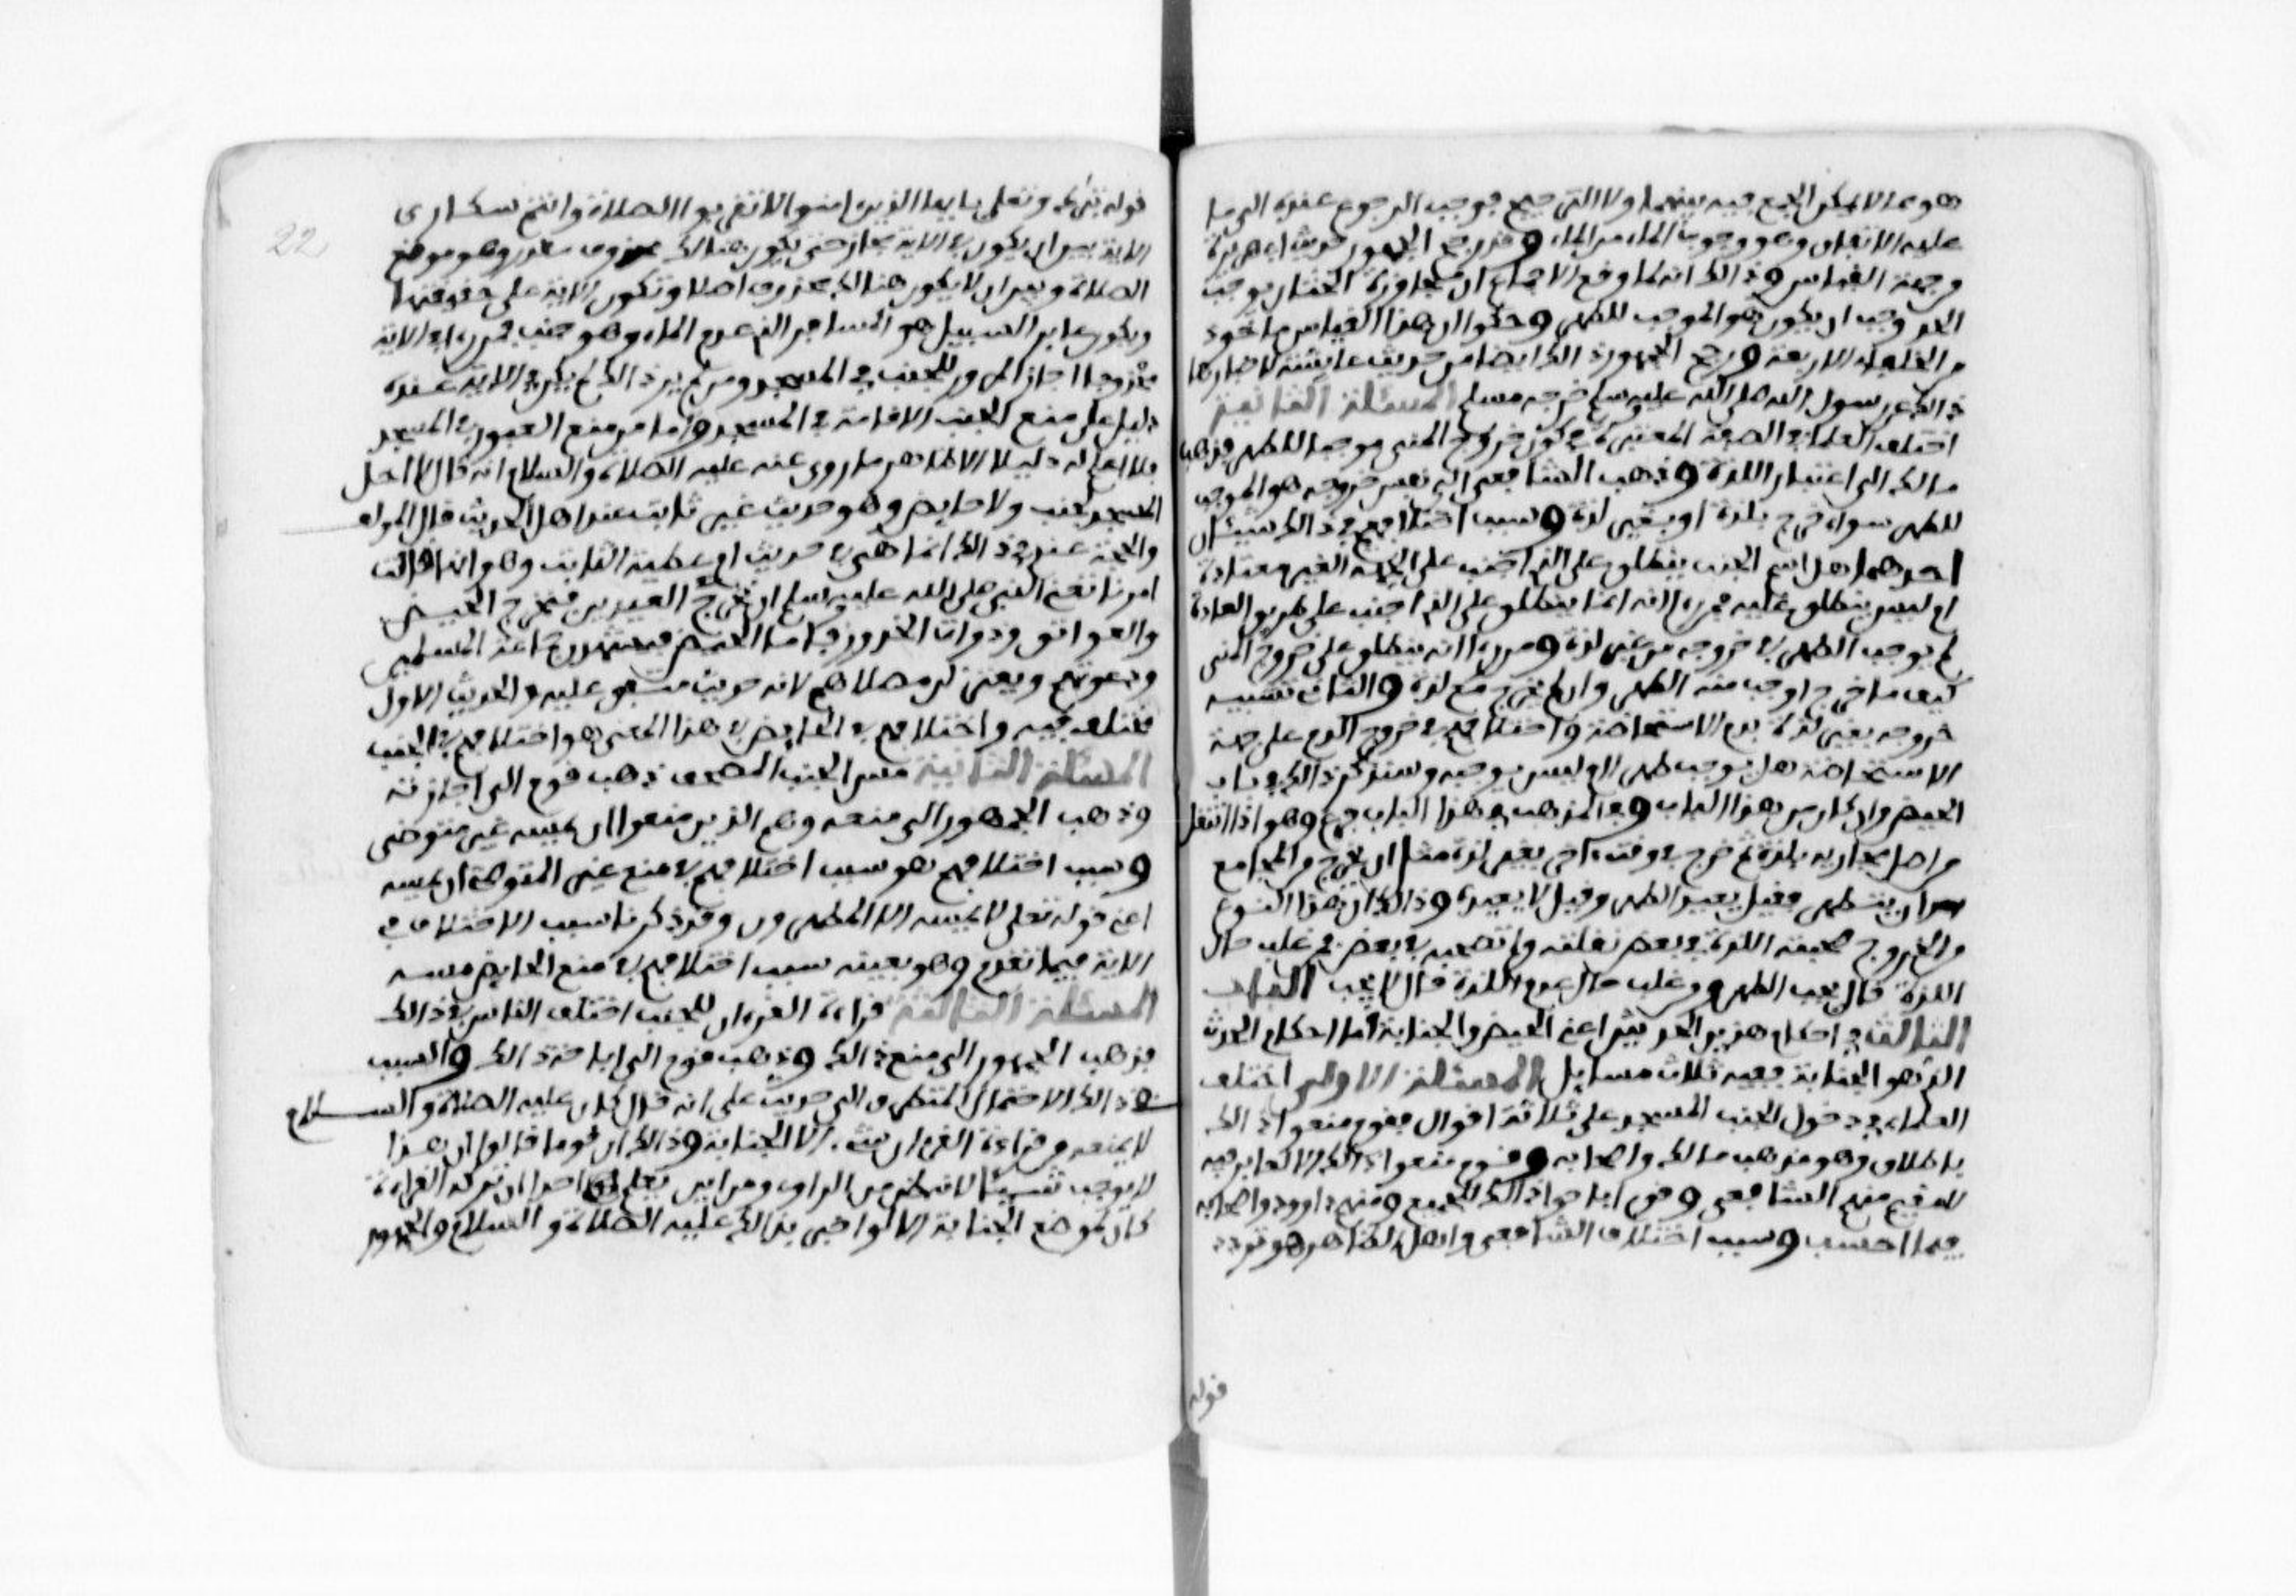 هو مما لا يمكن الجمع فيه بينهما ولا الترجيح فوجب الرجوع عنده الى ما
عليه الاتفاق وهو وجوب الماء من الماء وقد رجح الجمهور حديث ابي هريرة
من جهة القياس وذالك انه لما وقع الاجماع ان مجاوزة الختان توجب
الحد وجب ان يكون هو الموجب للطهر وحكوا ان هذا القياس ماخوذ
من الخلفاء الاربعة ورجح الجمهور ذالك ايضا من حديث عايشة لاخبارها
ذالك عن رسول الله صلى الله عليه وسلم خرجه مسلم المسئلة الثانية
اختلف العلماء في الصفة المعتبرة في كون خروج المني موجبا للطهر فذهب
مالك الى اعتبار اللذة وذهب الشافعي الى نفس خروجه هو الموجب
للطهر سواء خرج بلذة او بغير لذة وسبب اختلافهم في ذالك شيئان
احدهما هل اسم الجنب ينطلق على الذي اجنب على الجهة الغير معتادة
ام ليس ينطلق عليه فمن رءا انه انما ينطلق على الذي اجنب على طريق العادة
لم يوجب الطهر في خروجه من غير لذة ومن رءا انه ينطلق على خروج المني
كيف ما خرج اوجب منه الطهر وان لم يخرج مع لذة والثاني تشبيه
خروجه بغير لذة بدم الاستحاضة واختلافهم في خروج الدم على جهة
الاستحاضة هل يوجب طهرا ام ليس يوجبه وسنذكر ذالك في باب
الحيض وان كان من هذا الباب وفي المذهب في هذا الباب فرع وهو اذا انتقل
من اصل مجاريه بلذة ثم خرج في وقت ءاخر بغير لذة مثل ان يخرج من المجامع
بعد ان يتطهر فقيل يعيد الطهر وقيل لا يعيده وذالك ان هذا النوع
من الخروج صحبته اللذة في بعض نقلته ولم تصحبه في بعض فمن غلب حال
اللذة قال يجب الطهر ومن غلب حال عدم اللذة قال لا يجب الباب
الثالث في احكام هذين الحدثين اعني الحيض والجنابة اما احكام الحدث
الذي هو الجنابة ففيه ثلاث مسايل المسئلة الاولى اختلف
العلماء في دخول الجنب المسجد على ثلاثة اقوال فقوم منعوا ذالك
باطلاق وهو مذهب مالك واصحابه وقوم منعوا ذالك الا لعابر فيه
لا مقيم منهم الشافعي وقوم اباحوا ذالك للجميع ومنهم داوود واصحابه
فيما احسب وسبب اختلاف الشافعي واهل الظاهر هو تردد
قوله
22
قوله تبارك وتعلى يا ايها الذين امنوا لا تقربوا الصلاة وانتم سكارى
الاية بين ان يكون في الاية مجاز حتى يكون هنالك محذوف مقدر وهو موضع
الصلاة وبين ان لا يكون هنالك محذوف اصلا وتكون الاية على حقيقتها
ويكون عابر السبيل هو المسافر الذي عدم الماء وهو جنب فمن رءا في الاية
محذوفا اجاز المرور للجنب في المسجد ومن لم ير ذالك لم يكن في الاية عنده
دليل على منع الجنب الاقامة في المسجد واما من منع العبور في المسجد
فلا اعلم له دليلا الا ظاهر ما روي عنه عليه الصلاة والسلام انه قال لا احل
المسجد لجنب ولا حايض وهو حديث غير ثابت عند اهل الحديث قال المولف
والحجة عندي في ذالك انما هي في حديث ام عطية الثابت وهو انها قالت
امرنا تعني النبي صلى الله عليه وسلم ان نخرج العيدين فتخرج الحيض
والعواتق وذوات الخدور فاما الحيض فيشهدن جماعة المسلمين
ودعوتهم ويعتزلن مصلاهم لانه حديث متفق عليه والحديث الاول
مختلف فيه واختلافهم في الحايض في هذا المعنى هو اختلافهم في الجنب
المسئلة الثانية مس الجنب المصحف ذهب قوم الى اجازته
وذهب الجمهور الى منعه وهم الذين منعوا ان يمسه غير متوضي
وسبب اختلافهم هو سبب اختلافهم في منع غير المتوضئ ان يمسه
اعني قوله تعلى لا يمسه الا المطهرون وقد ذكرنا سبب الاختلاف في
الاية فيما تقدم وهو بعينه سبب اختلافهم في منع الحايض مسه
المسئلة الثالثة قراءة القرءان للجنب اختلف الناس في ذالك
فذهب الجمهور الى منع ذالك وذهب قوم الى اباحة ذالك والسبب
في ذالك الاحتمال المتطرق الى حديث علي انه قال كان عليه الصلاة والسلام
لا يمنعه من قراءة القرءان شيء الا الجنابة وذالك ان قوما قالوا ان هذا
لا يوجب شيئا لانه ظن من الراوي ومن اين يعلم احد ان ترك القراءة
كان لموضع الجنابة الا لو اخبر بذالك عليه الصلاة والسلام والجمهور